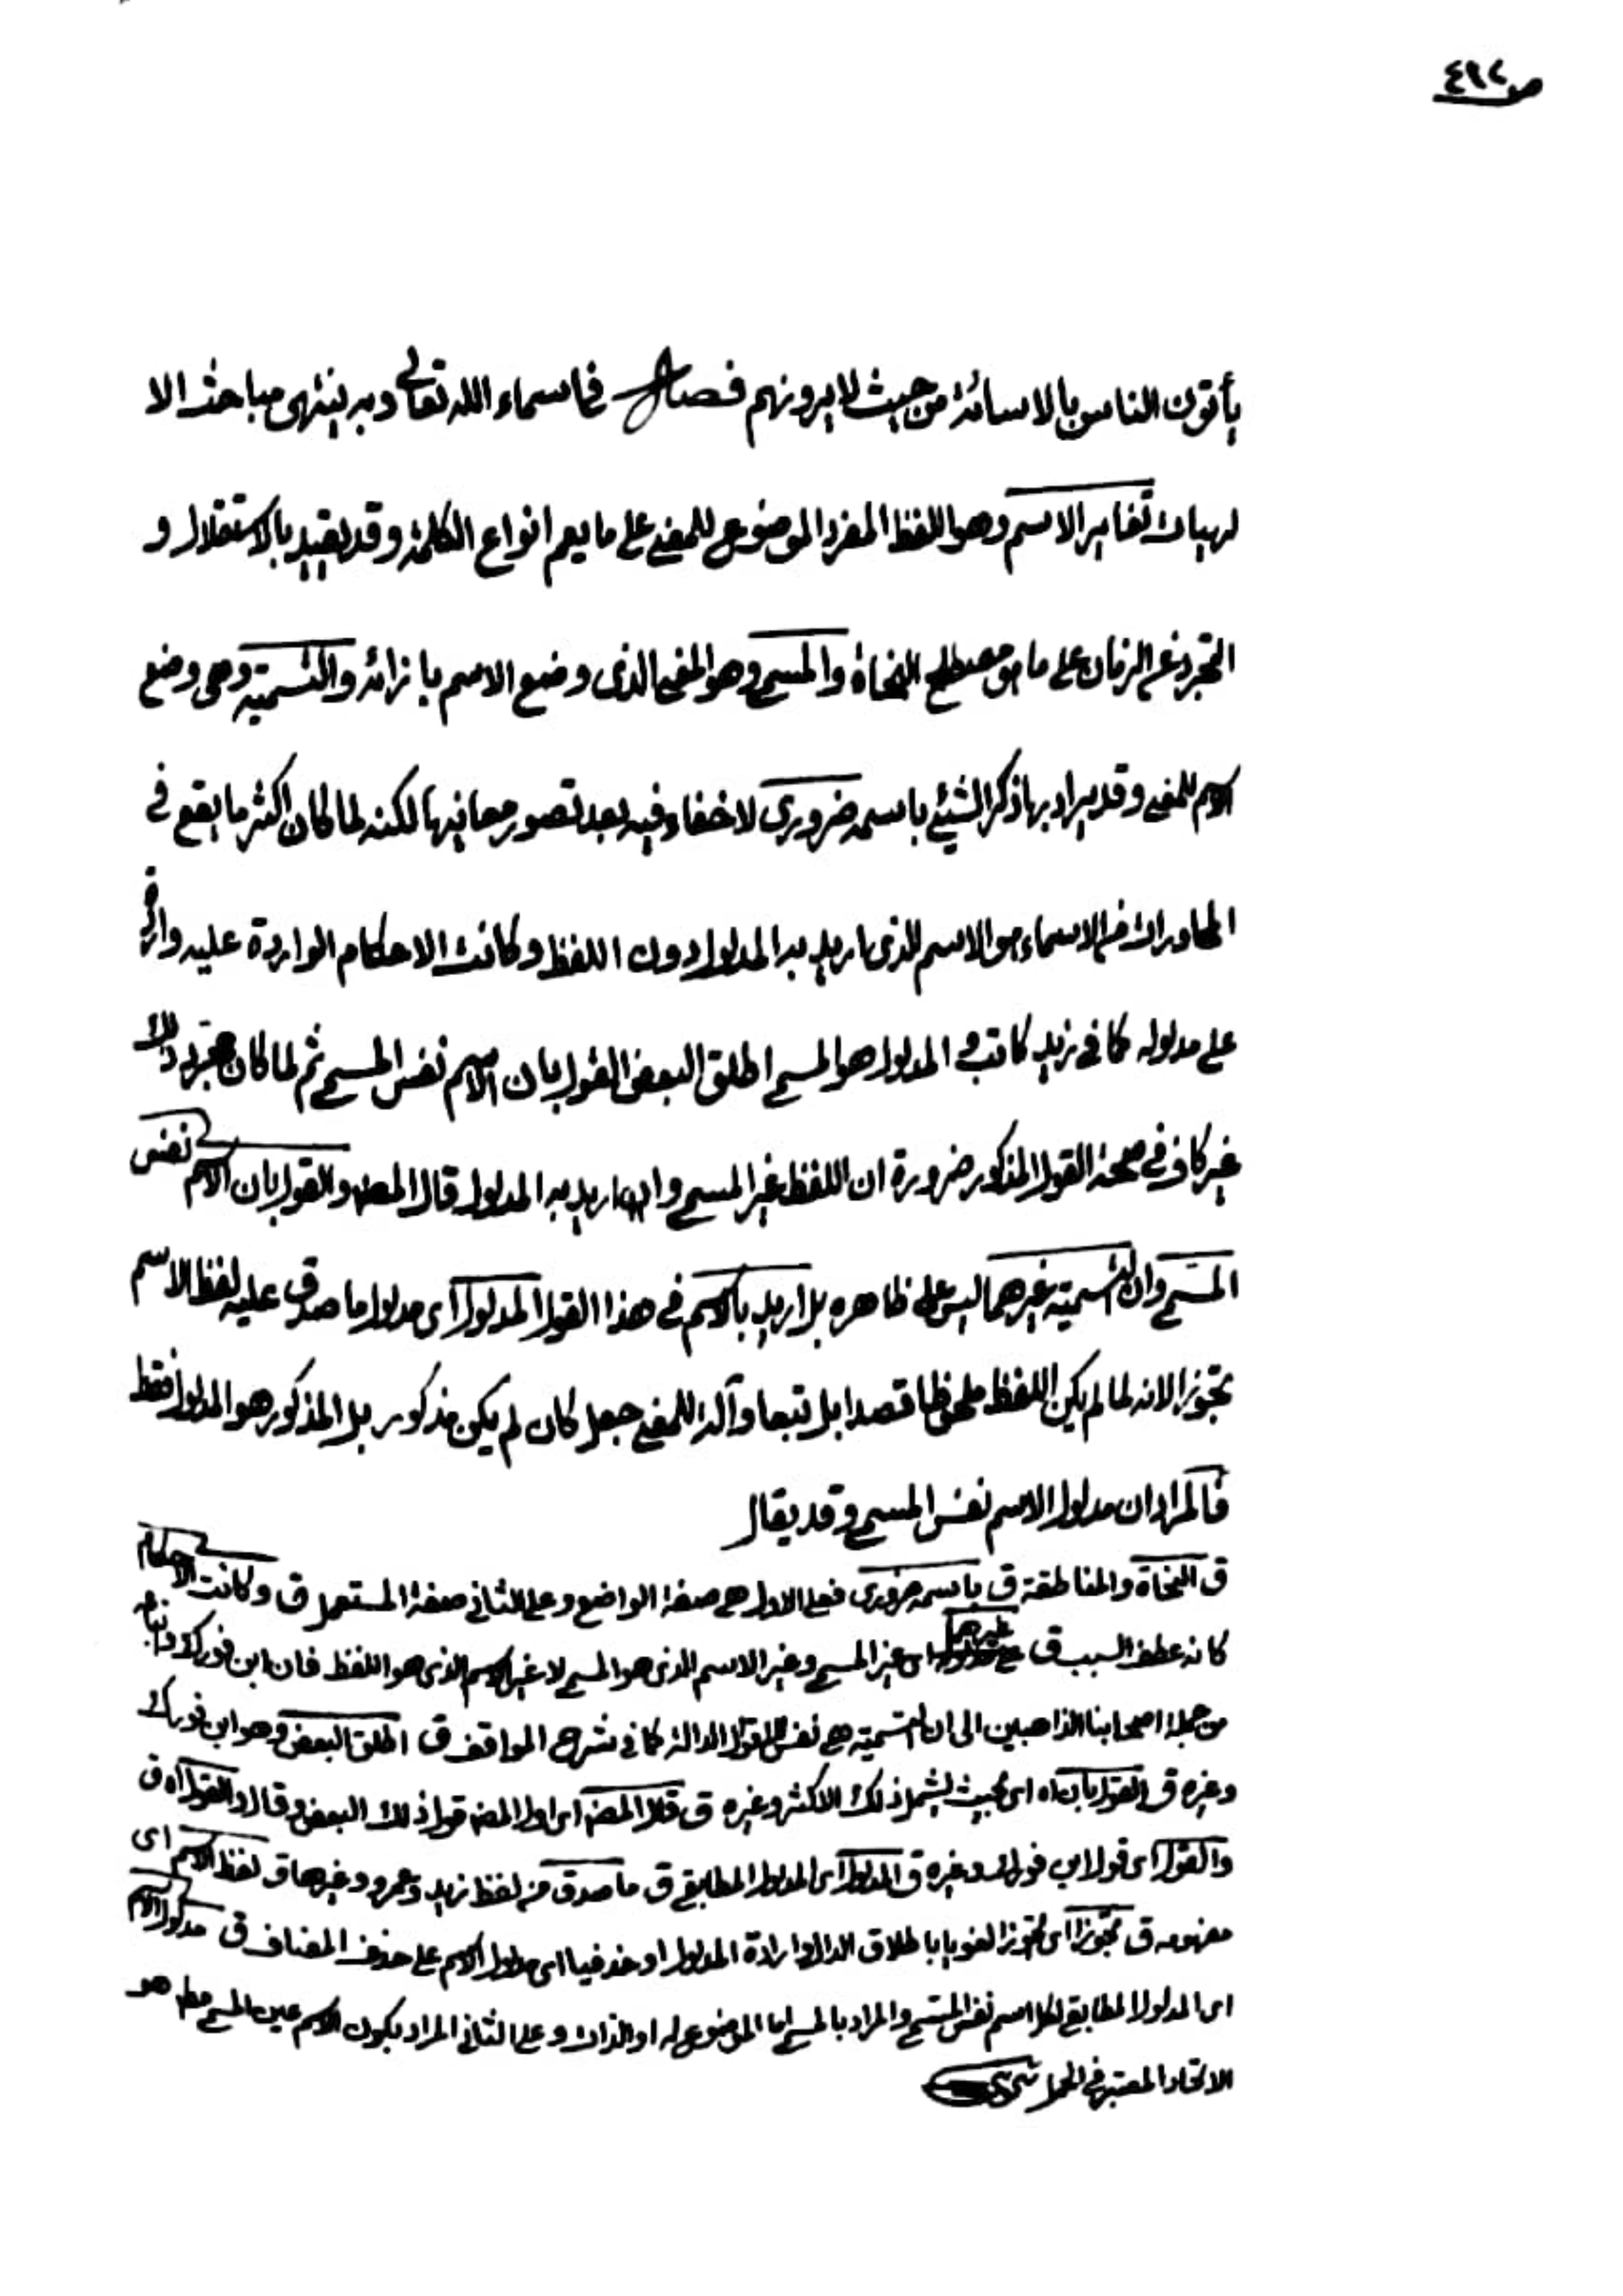 ص٤٩٢
يأتون الناس بالاساءة من حيث لا يرونهم فصل في اسماء الله تعالى وبه ينتهى مباحث الا
لهيات تغاير الاسم وهو اللفظ المفرد الموضوع للمعنى على ما يعم انواع الكلمة وقد يقيد بالاستقلال و
التجرد عن الزمان على ما هو مصطلح النحاة والمسمى وهو المعنى الذى وضع الاسم بازائه والتسمية وهى وضع
الاسم للمعنى وقد يراد بها ذكر الشيئ باسمه ضرورى لا خفاء فيه بعد تصور معانيها لكنه لما كان اكثر ما يقع في
المحاورات من الاسماء هو الاسم الذى اريد به المدلول دون اللفظ وكانت الاحكام الواردة عليه واقعة
على مدلوله كما في زيد كاتب و المدلول هو المسمى اطلق البعض القول بان الاسم نفس المسمى ثم لما كان مجرد ذلك
غير كاف في صحة القول المذكور ضرورة ان اللفظ غير المسمى وان اريد به المدلول قال المص والقول بان الاسم نفس
المسمى وان التسمية غيرهما ليس على ظاهره بل اريد بالاسم في هذا القول المدلول اى مدلول ما صدق عليه لفظ الاسم
تجوزا لانه لما لم يكن اللفظ ملحوظا قصدا بل تبعا وآلة للمعنى جعل كان لم يكن مذكور بل المذكور هو المدلول فقط
فالمراد ان مدلول الاسم نفس المسمى وقد يقال
ق النحاة والمناطقة ق باسمه ضرورى فعلى الاول هى صفة الواضع وعلى الثانى صفة المستعمل ق وكانت الاحكام
كانه عطف السبب ق غيرهما اى غير المسمى وغير الاسم الذى هو المسمى لا غير الاسم الذى هو اللفظ فان ابن فورك واتباعه
من جملة اصحابنا الذاهبين الى ان التسمية هى نفس الاقوال الدالة كما في شرح المواقف ق اطلق البعض وهو ابن فورك
وغيره ق القول بان اه اى بحيث يشمل ذلك الاكثر وغيره ق قال المص اى اول المص قول ذلك البعض وقال والقول اه ق
والقول اى قول ابن فورك وغيره ق المدلول اى المدلول المطابقى ق ما صدق من لفظ زيد وعمرو وغيرها ق لفظ الاسم اى
مفهومه ق تجوزا اى تجوزا لغويا باطلاق الدال وارادة المدلول او حذفيا اى مدلول الاسم على حذف المضاف ق مدلول الاسم
اى المدلول المطابقى لكل اسم نفس المسمى والمراد بالمسمى اما الموضوع له او الذات وعلى الثانى المراد بكون الاسم عين المسمى هو
الاتحاد المعتبر في الحمل